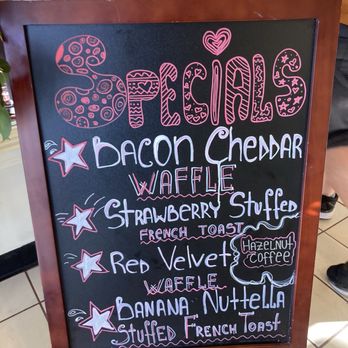 SPECIALS
BACON CHEDDAR
WAFFLE
STRAWBERRY STUFFED
FRENCH TOAST
RED VELVET
WAFFLE
HAZELNUT
COFFEE
BANANA NUTTELLA
STUFFED FRENCH TOAST